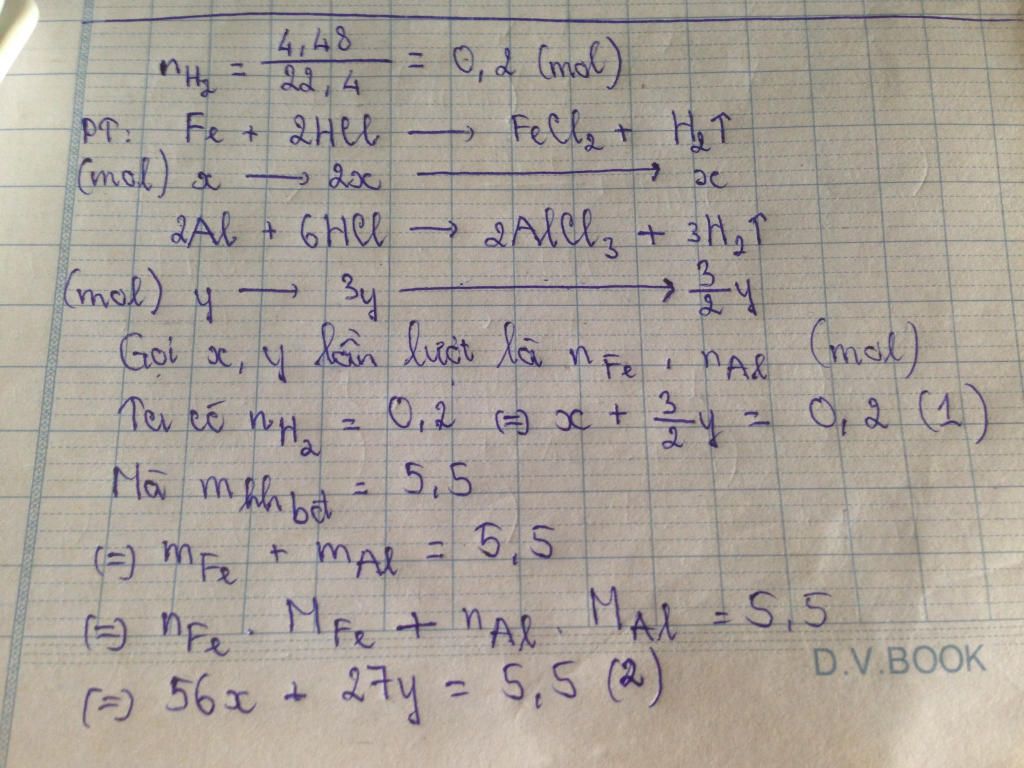 nH₂ = 4,48/22,4 = 0,2 (mol)
PT: Fe + 2HCl → FeCl₂ + H₂↑
(mol) x → 2x → x
2Al + 6HCl → 2AlCl₃ + 3H₂↑
(mol) y → 3y → 3/2 y
Gọi x, y lần lượt là nFe, nAl (mol)
Ta có nH₂ = 0,2 (=) x + 3/2 y = 0,2 (1)
Mà mhhbđ = 5,5
(=) mFe + mAl = 5,5
(=) nFe . MFe + nAl . MAl = 5,5
D.V.BOOK
(=) 56x + 27y = 5,5 (2)